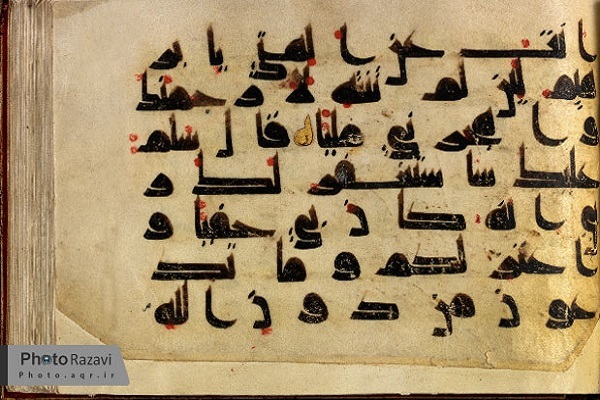 انت عن الهتي يابر
هيم لئن لم تنته لارجمنك
واهجرني مليا قال سلم
عليك ساستغفر لك ر
بي انه كان بي حفيا و
اعتزلكم وما تد
عون من دون الله
PhotoRazavi
Photo.aqr.ir